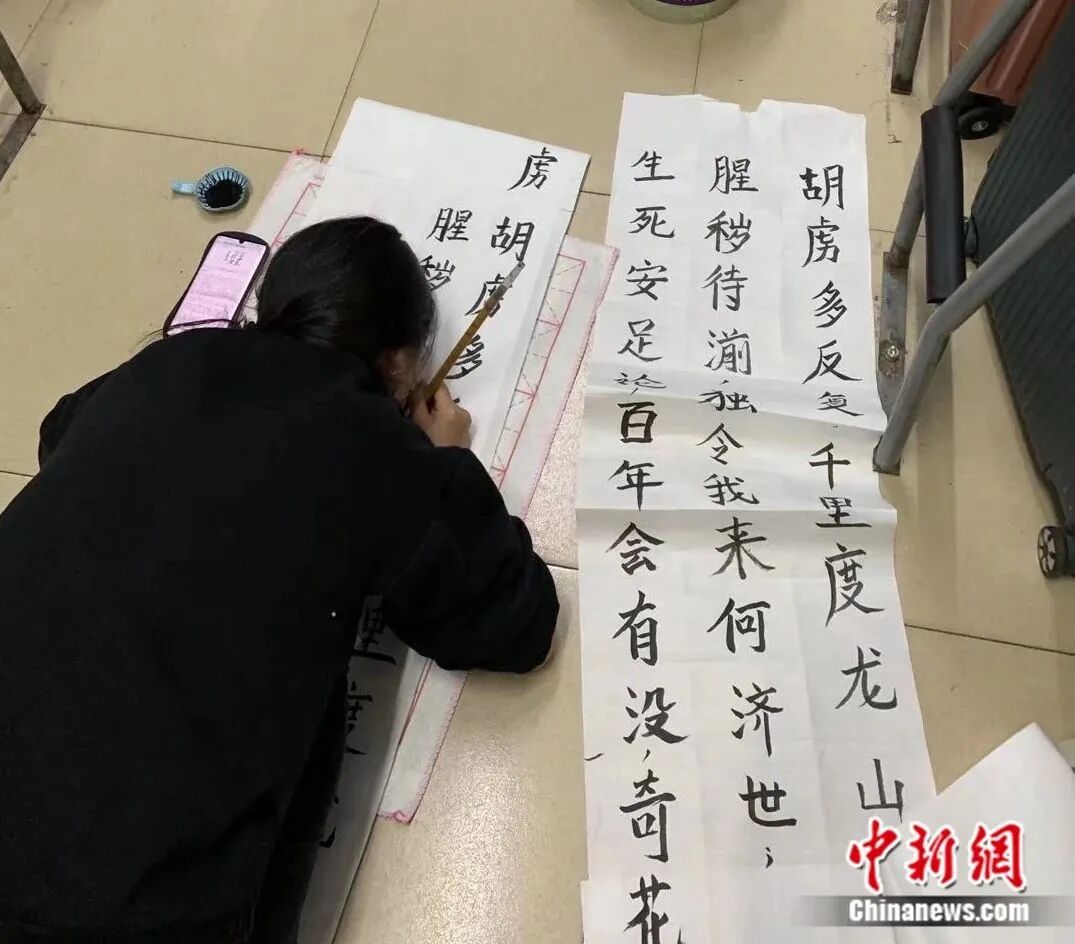 胡虏多反复,千里度龙山
腥秽待湔独令我来何济世;
生死安足论,百年会有没,奇花
虏胡虏多
里度
腥秽
中新網
Chinanews.com